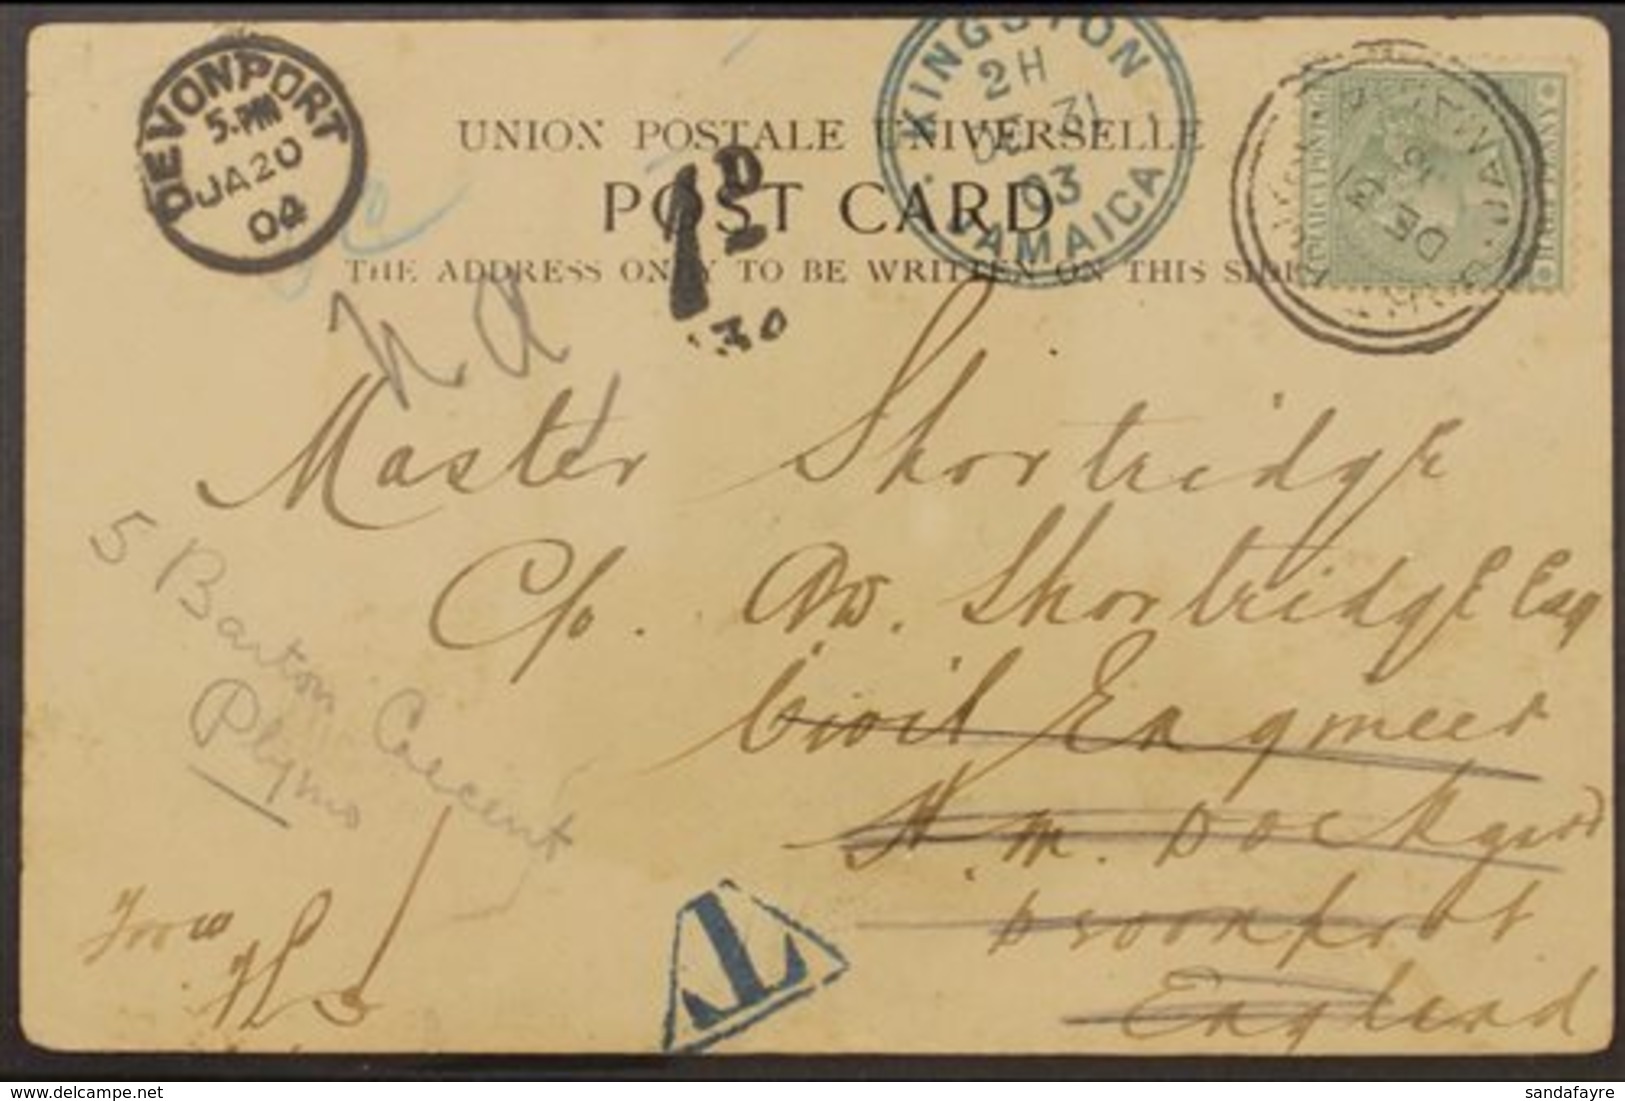 DEVONPORT
5.PM
JA 20
04
KINGSTON
2H
DE 31
03
JAMAICA
JAMAICA PENINE
HALF PENNY
UNION POSTALE UNIVERSELLE
POST CARD
THE ADDRESS ONLY TO BE WRITTEN ON THIS SIDE
1D
30
Master Shortridge
C/o. Shortridge Esq
Civil Engineer
H. M. Dockyard
Devonport
England
5 Barton Crescent
Plymo
From
T
sandafayre